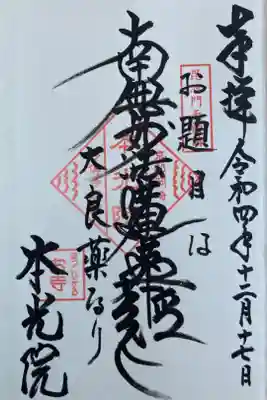 奉拝 令和四年十二月十七日
お題目は
南無妙法蓮華経
大良薬なり
本光院